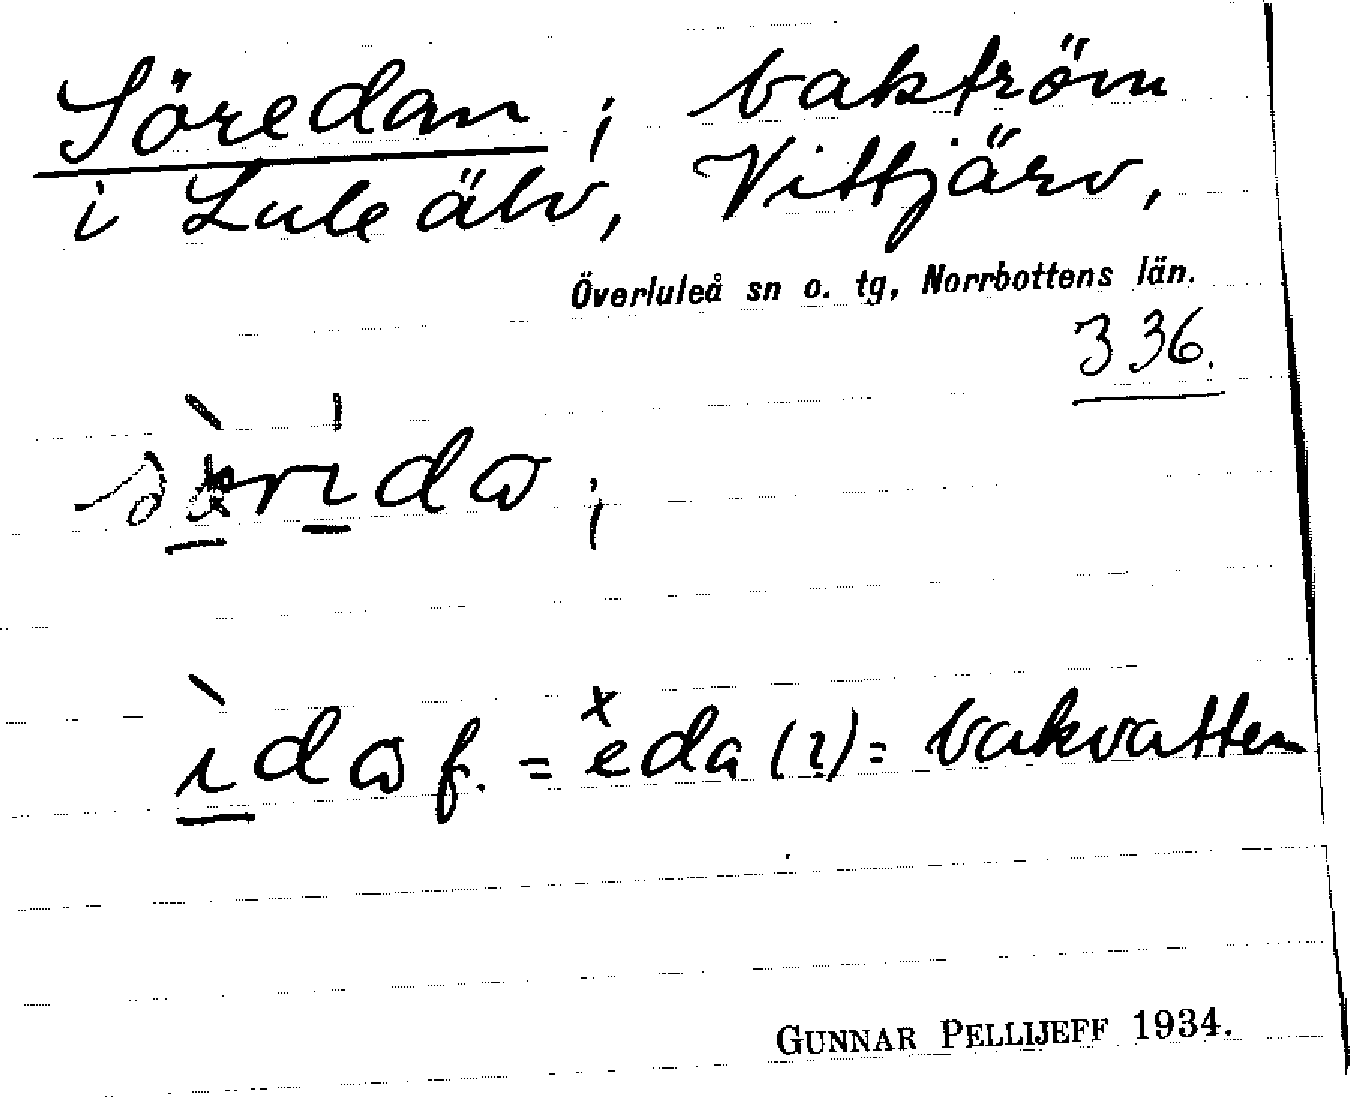 Söredan ; bakström
i Lule älv, Vittjärv,
Överluleå sn o. tg, Norrbottens län.
336.
ı̀da f. = eda (?) = bakvatten
GUNNAR PELLIJEFF 1934.